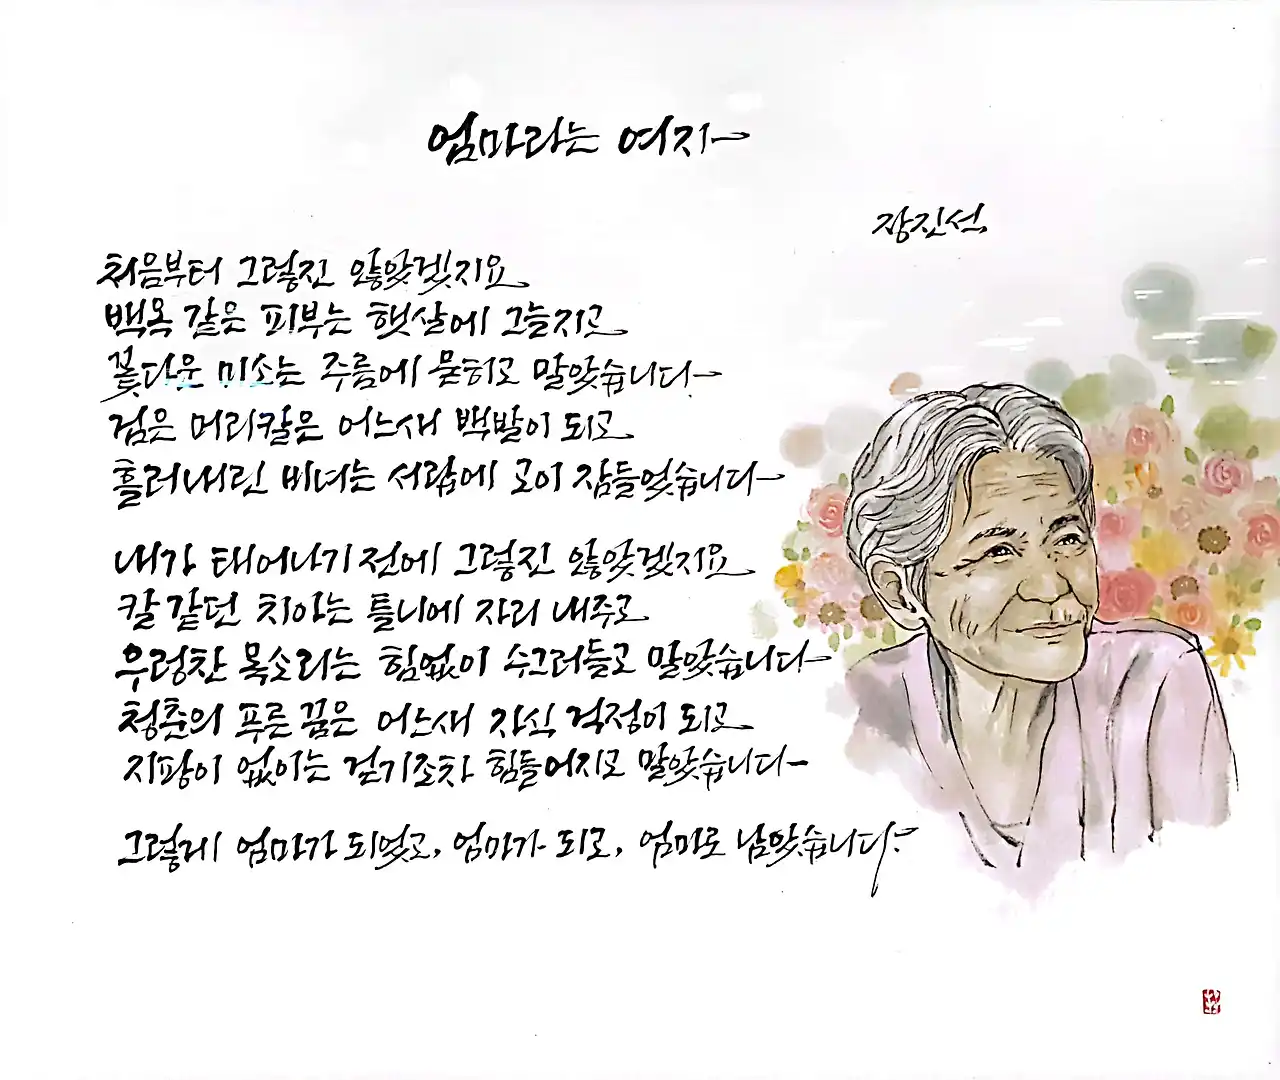 엄마라는 여자
장진석
처음부터 그렇진 않았겠지요
백옥 같은 피부는 햇살에 그늘지고
꽃다운 미소는 주름에 묻히고 말았습니다.
검은 머리칼은 어느새 백발이 되고
흘러내린 비녀는 서랍에 고이 잠들었습니다
내가 태어나기 전에 그렇진 않았겠지요
칼 같던 치아는 틀니에 자리 내주고
우렁찬 목소리는 힘없이 수그러들고 말았습니다
청춘의 푸른 꿈은 어느새 자식 걱정이 되고
지팡이 없이는 걷기조차 힘들어지고 말았습니다
그렇게 엄마가 되었고, 엄마가 되고, 엄마로 남았습니다.